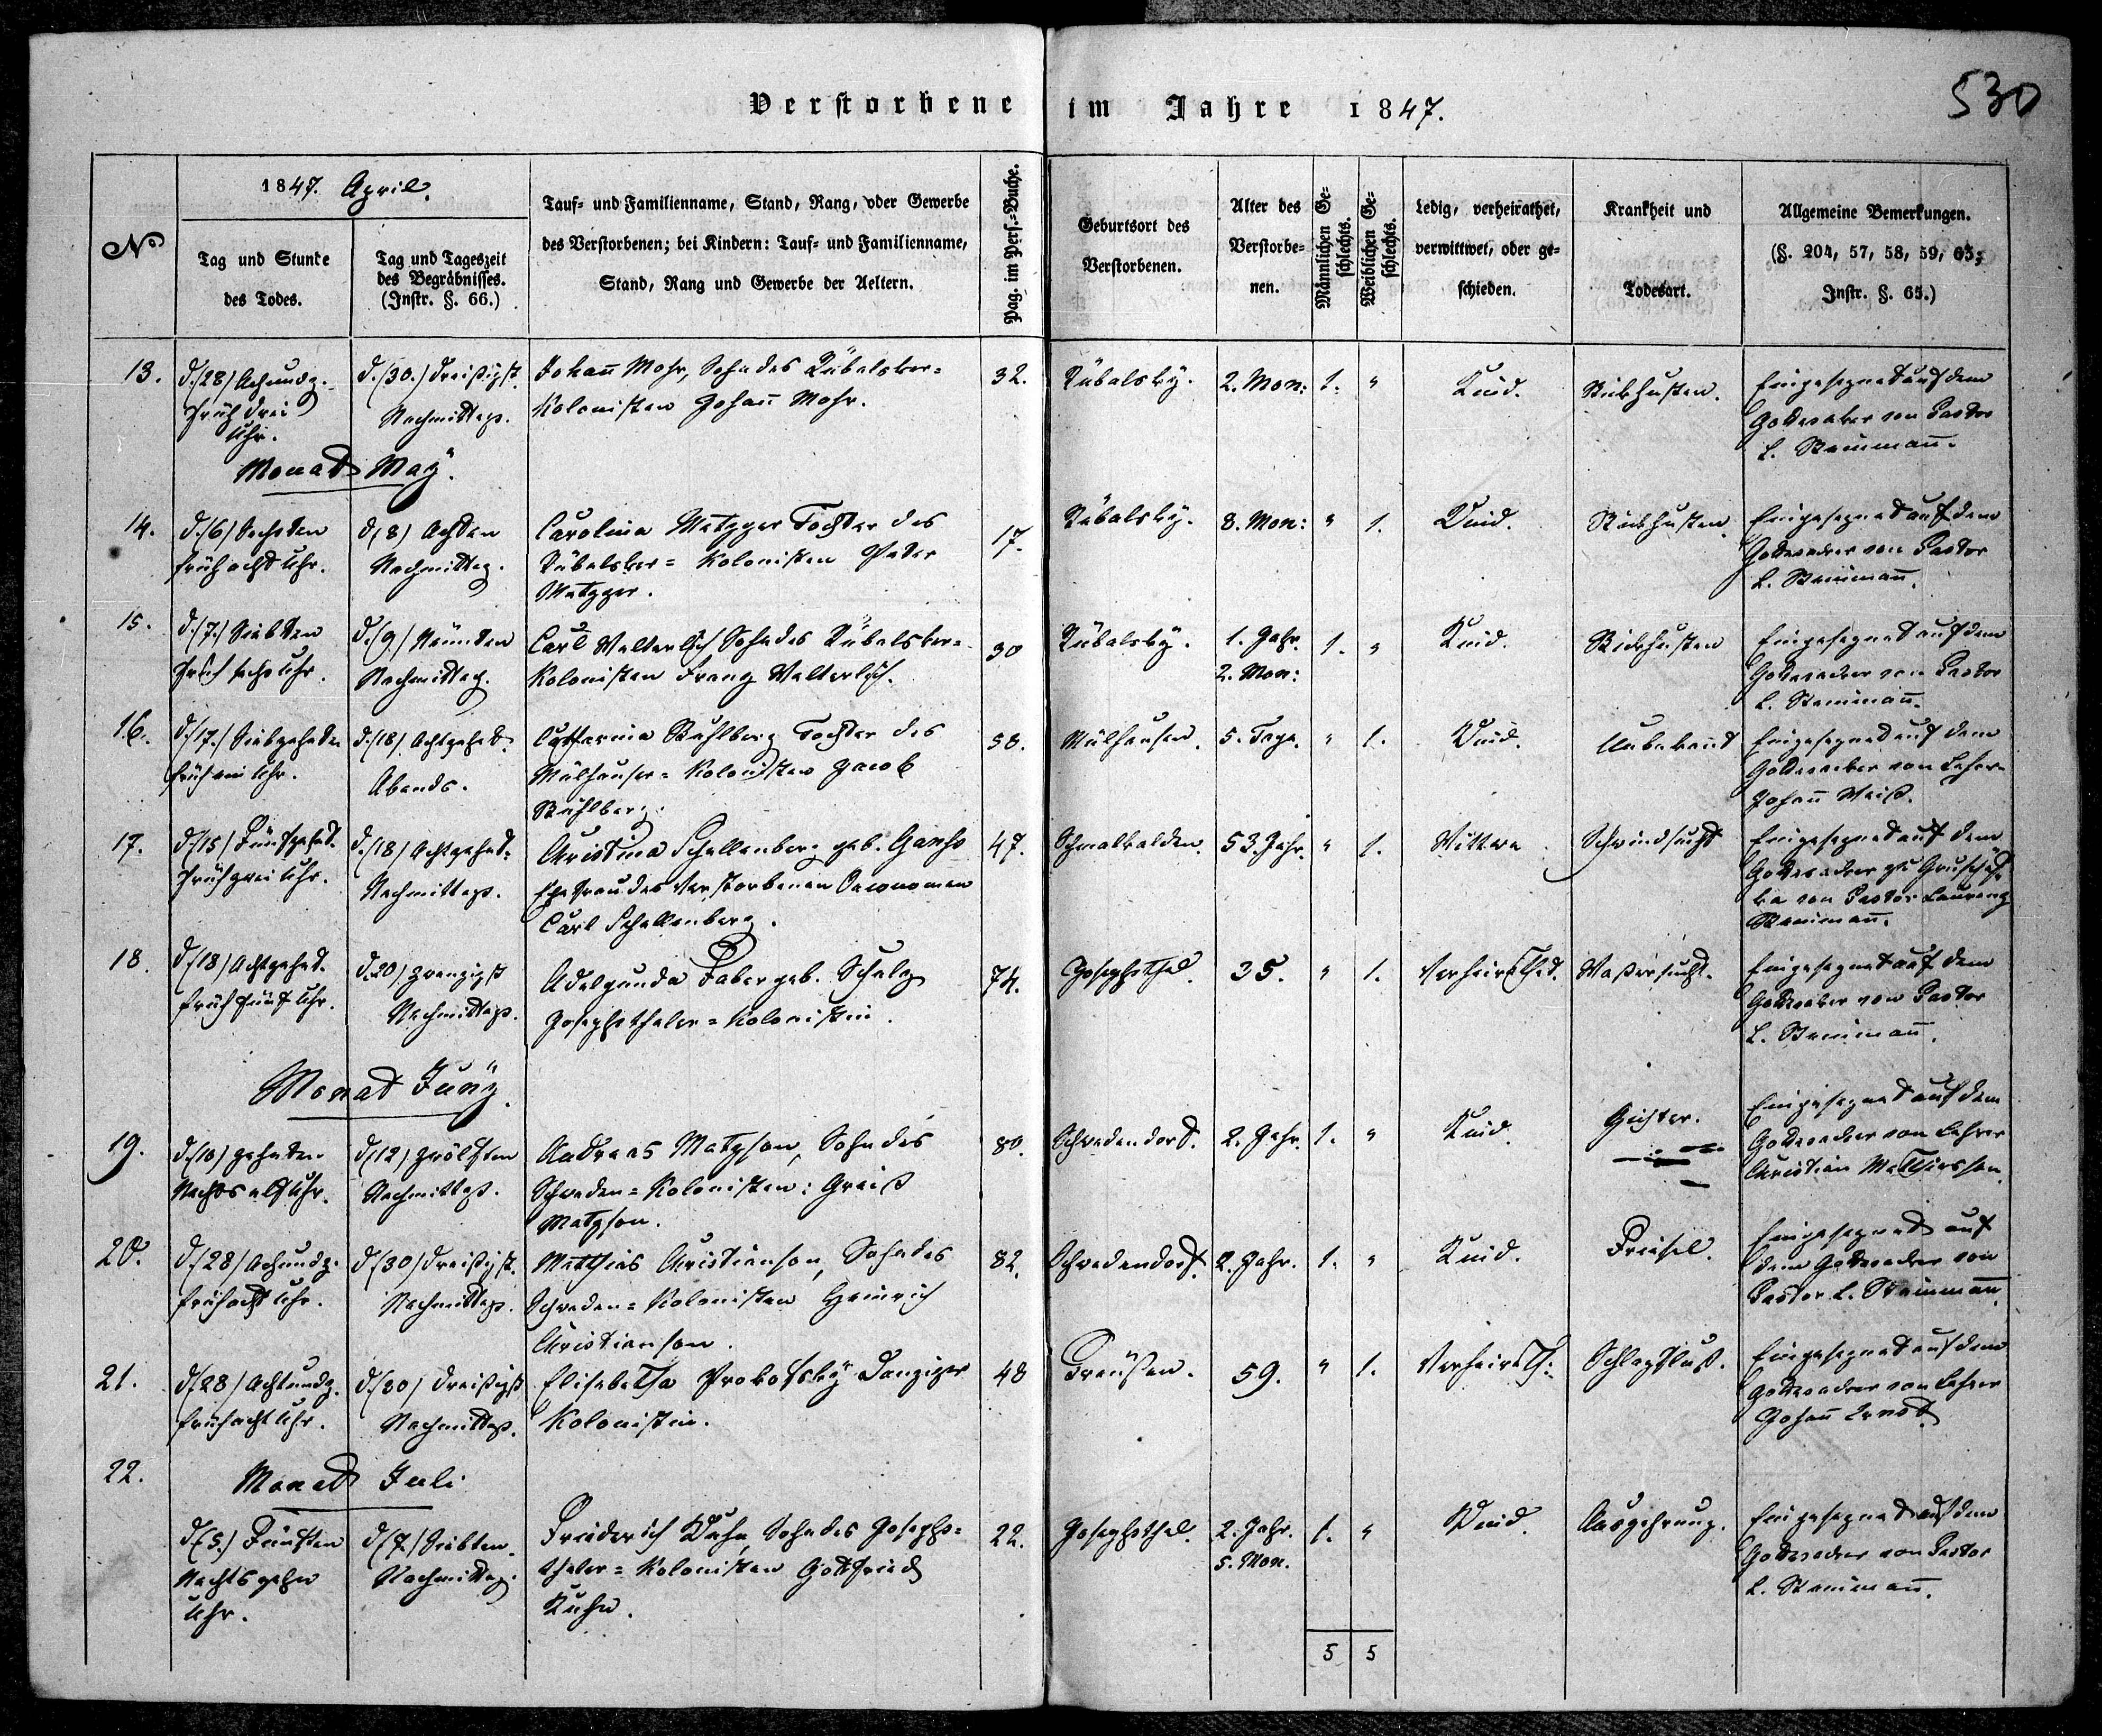 530
Verstorbene im Jahre 1847.
No
1847. April.
Tag und Stunde
des Todes.
Tag und Tageszeit
des Begräbnisses.
(Instr. §. 66.)
Tauf- und Familienname, Stand, Rang, oder Gewerbe
des Verstorbenen; bei Kindern: Tauf- und Familienname,
Stand, Rang und Gewerbe der Aeltern.
Pag. im Pers.-Buche.
Geburtsort des
Verstorbenen.
Alter des
Verstorbe-
nen.
Männlichen Ge-
schlechts.
Weiblichen Ge-
schlechts.
Ledig, verheirathet,
verwittwet, oder ge-
schieden.
Krankheit und
Todesart.
Allgemeine Bemerkungen.
(§. 204, 57, 58, 59, 63;
Instr. §. 65.)
13. d. (28) Achundz. d. (30.) dreißigst. Johañ Mohr, Sohn des Rübalsker= 32. Rübalsky. 2. Mon: 1. " Kind. Stickhusten. Eingesegnet auf dem
früh drei Nachmittags. Kolonisten Johañ Mohr. Gottesaker von Pastor
Uhr. L. Steinmañ.
Monat May.
14. d. (6) Sechsten d. (8) Achten Carolina Metzger Tochter des 17. Rübalsky. 8. Mon: " 1. Kind. Stickhusten Eingesegnet auf dem
früh acht Uhr. Nachmittag. Rübalsker= Kolonisten Peter Gottesacker von Pastor
Metzger. L. Steinmañ.
15. d. (7.) Siebten d. (9.) Neunten Carl Sohn des Rübalsker= 30 Rübalsky. 1. Jahr. 1. " Kind. Stickhusten Eingesegnet auf dem
früh sechs Uhr. Nachmittag. Kolonisten Franz 2. Mon: Gottesacker von Pastor
L. Steinmañ.
16. d. (17.) Siebzehnten d. (18) Achtzehnt. Catharina Stuhlberg Tochter des 58. Mülhausen. 5. Tage. " 1. Kind. Unbekannt Eingesegnet auf dem
früh ein Uhr. Abends. Mülhauser= Kolonisten Jacob Gottesacker von Lehrer
Stuhlberg. Johañ Weiß.
17. d. (15) Fünfzehnt. d. (18) Achtzehnt. Christina Schellenberg geb. 47. Schmalkalden. 53 Jahr. " 1. Wittwe. Schwindsucht Eingesegnet auf dem
früh zwei Uhr. Nachmittags. Ehefrau des Verstorbenen Oeconomen Gottesacker zu
Carl Schellenberg. von Pastor Laurenz
Steinmañ.
18. d. (18) Achtzehnt. d. 20) zwanzigst Adelgunda Faber geb. Schulz 74. Josephsthal. 35. " 1. Verheirathet. Waßersucht. Eingesegnet auf dem
früh fünf Uhr. Nachmittags. Josephsthaler= Kolonistin. Gottesaker von Pastor
L. Steinmañ.
Monat Juny.
19. d. (10) zehnten d. (12) zwölften Andreas Matzson, Sohn des 80. Schwedendorf. 2. Jahr. 1. " Kind. Gichter. Eingesegnet auf dem
Nachts elf Uhr. Nachmittags. Schweden= Kolonisten: Greis Gottesacker von Lehrer
Matzson. Christian Mathiessen.
20. d. (28) Achundz. d. (30) dreißigst. Matthias Christianson, Sohn des 82. Schwedendorf. 2. Jahr. 1. " Kind. Frisel. Eingesegnet auf
früh acht Uhr. Nachmittags. Schweden= Kolonisten Heinrich dem Gottesacker von
Christianson. Pastor L. Steinmañ
21. d. (28) Achtundz. d. (30) dreißigst Elisabetha Prokofsky Danziger 48 Preußen. 59. " 1. Verheirath: Schlagfluß. Eingesegnet auf dem
früh acht Uhr. Nachmittags. Kolonistin. Gottesacker von Lehrer
Johañ Ernst
22. Monat Juli
d. (5.) Fünften d. (7) Siebten. Friederich Kuhn, Sohn des Josephs= 22. Josephsthal. 2. Jahr. 1. " Kind. Auszehrung. Eingesegnet auf dem
Nachts zehn Nachmittag. thaler= Kolonisten Gottfried 5. Mon. Gottesacker von Pastor
Uhr. Kuhn. L. Steinmañ.
5 5